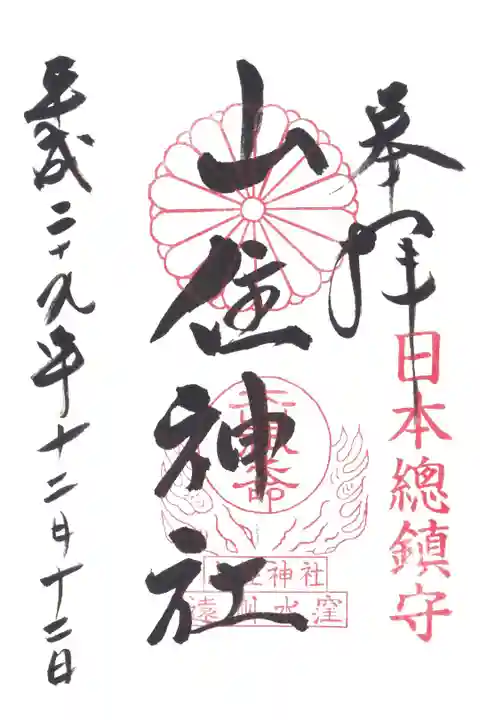 奉拝
日本總鎮守
山住神社
神社
遠州水窪
平成二十九年十二月十二日